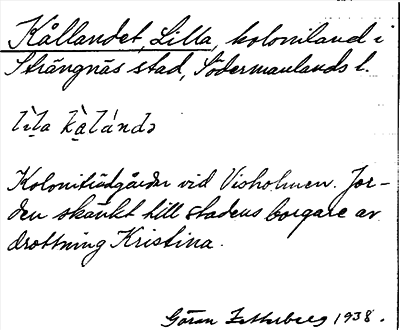 Kållandet, Lilla, koloniland i
Strängnäs stad, Södermanlands l.
lìla kàlándə
Koloniträdgårdar vid Visholmen. Jor-
den skänkt till stadens borgare av
drottning Kristina.
Göran Zetterberg 1938.